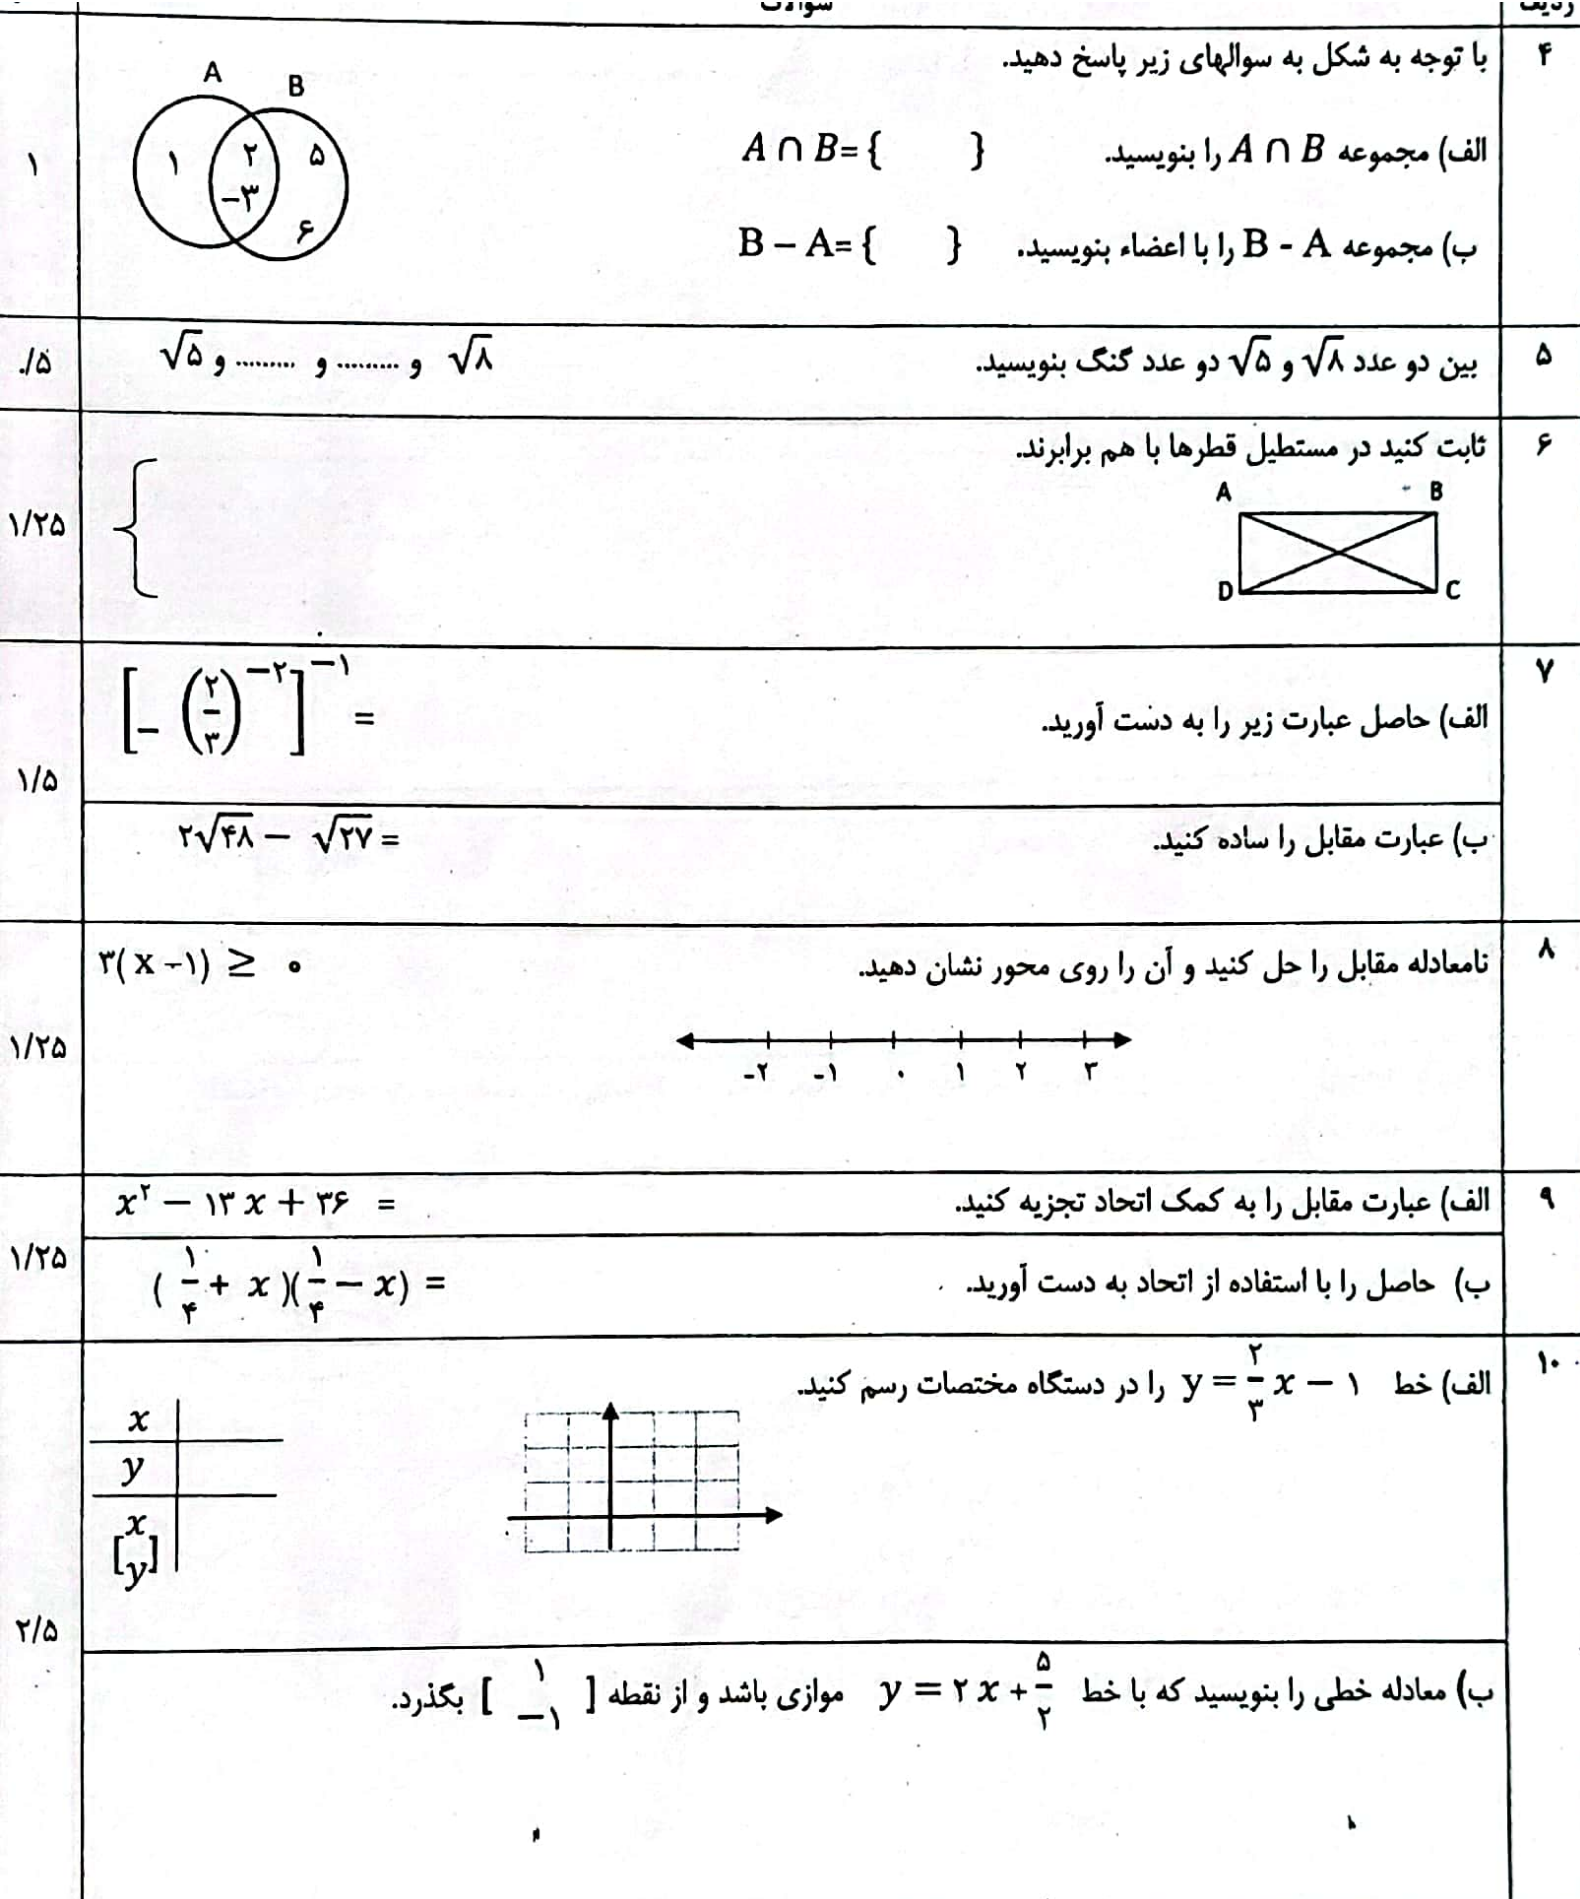 ردیف سوالات
۴ با توجه به شکل به سوالهای زیر پاسخ دهید.
A B
۱ ۲ -۳ ۵ ۶
الف) مجموعه A ∩ B را بنویسید. A ∩ B={ }
۱
ب) مجموعه B - A را با اعضاء بنویسید. B – A={ }
۵ بین دو عدد √۸ و √۵ دو عدد گنگ بنویسید. √۵ و ......... و ......... و √۸
./۵
۶ ثابت کنید در مستطیل قطرها با هم برابرند.
A B
D C
{
۱/۲۵
۷ الف) حاصل عبارت زیر را به دست آورید. [- (۲/۳)^{-۲}]^{-۱} =
۱/۵
ب) عبارت مقابل را ساده کنید. ۲√۴۸ – √۲۷ =
۸ نامعادله مقابل را حل کنید و آن را روی محور نشان دهید. ۳(x-۱) ≥ ۰
-۲ -۱ ۰ ۱ ۲ ۳
۱/۲۵
۹ الف) عبارت مقابل را به کمک اتحاد تجزیه کنید. x² – ۱۳x + ۳۶ =
۱/۲۵
ب) حاصل را با استفاده از اتحاد به دست آورید. (۱/۴ + x)(۱/۴ – x) =
۱۰ الف) خط y = ۲/۳ x – ۱ را در دستگاه مختصات رسم کنید.
x
y
[x y]
۲/۵
ب) معادله خطی را بنویسید که با خط y = ۲x + ۵/۲ موازی باشد و از نقطه [۱ -۱] بگذرد.